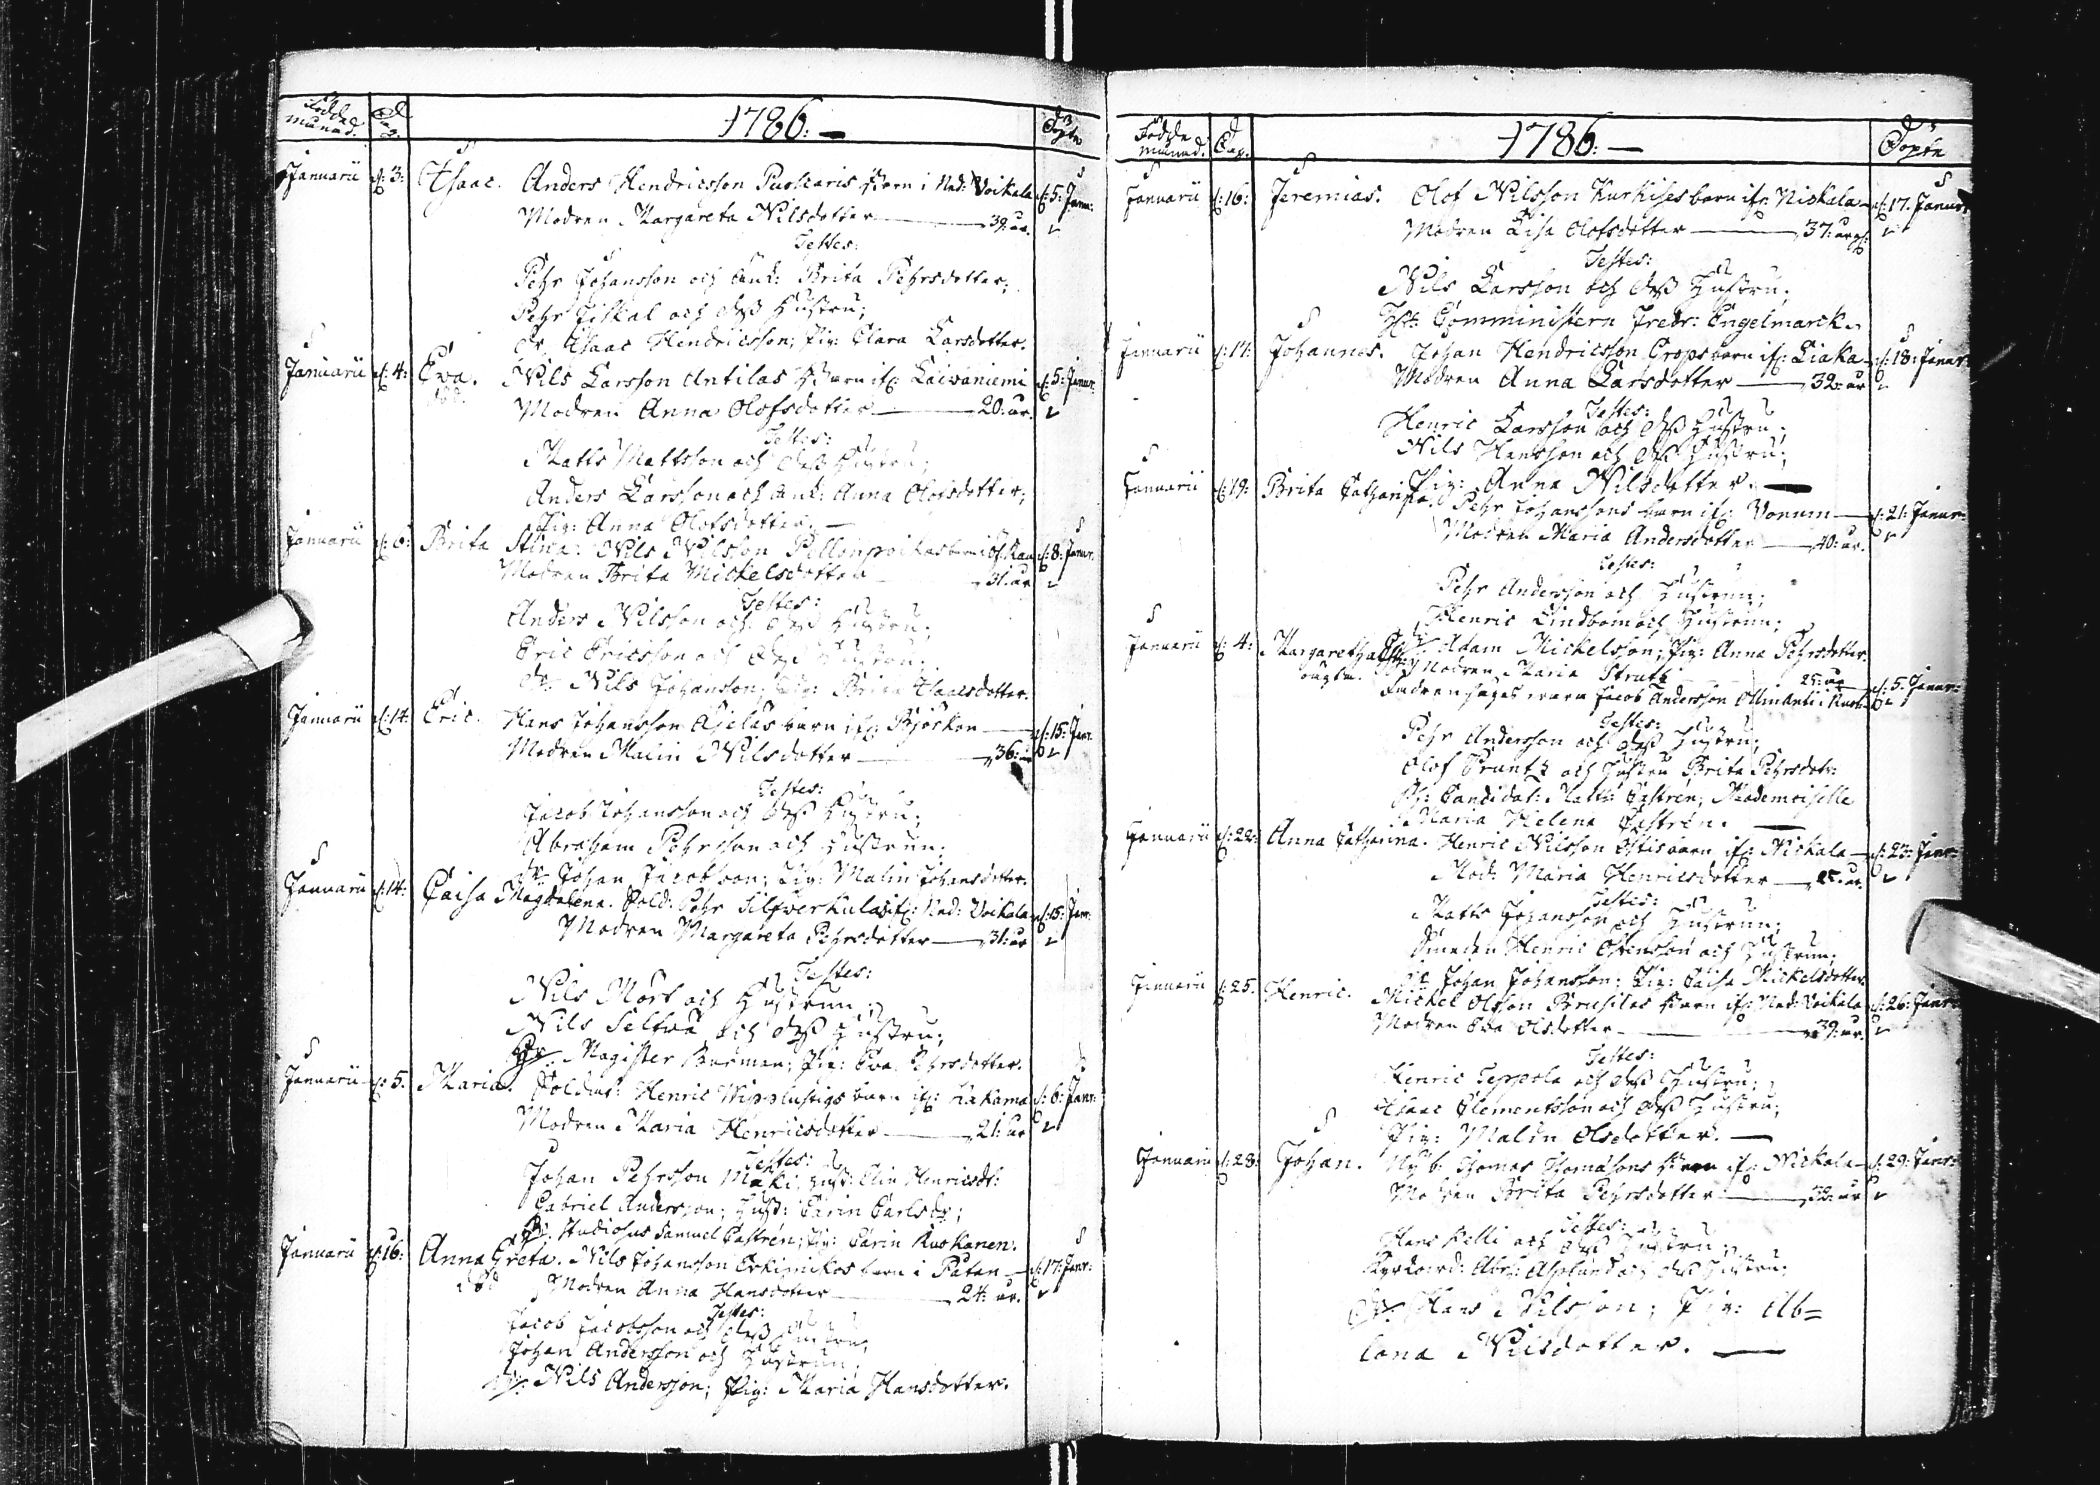 Födde månad. Dag 1786:— Döpte
Januarii d: 3: Isaac. Anders Hendricsson Puskaris Barn i Ned: Voikala d: 5: Janu:
Modren Margareta Nilsdotter — 39: år.
Testes:
Pehr Johansson och Enk: Brita Pehrsdotter;
Pehr Fiskal och dess Hustru;
Dr. Isaac Hendricsson; Pig: Clara Larsdotter.
Januarii d: 4: Ewa. Nils Larsson Antilas Barn ifr: Laivaniemi d: 5: Janu:
död. Modren Anna Olofsdotter — 20: år.
Testes:
Matts Mattsson och dess Hustru;
Anders Larsson och Enk: Anna Olofsdotter;
Pig: Anna Olofsdotter. —
Januarii d: 6: Brita Stina: Nils Nilsson Pillonpoikas barn d: 8: Janu:
Modren Brita Mickelsdotter — 31: år
Testes:
Anders Nilsson och dess Hustru;
Eric Ericsson och dess Hustru;
Dr. Nils Johansson; Pig: Brita Isaacsdotter.
Januarii d: 14: Eric. Hans Johansson barn ifr: Björkön — d: 15: Janu:
Modren Malin Nilsdotter — 36: år
Testes:
Jacob Johansson och dess Hustru;
Abraham Pehrsson och Hustrun;
Dr. Johan Jacobsson; Pig: Malin Johansdotter.
Januarii d: 14: Caisa Magdalena. Sold: Pehr Silfverkulas ifr: Ned: Voikala d: 15: Jan:
Modren Margareta Pehrsdotter — 31: år
Testes:
Nils Mört och Hustrun;
Nils och dess Hustru;
Hr. Magister Burman; Pig: Eva Ehrsdotter.
Januarii d: 5. Maria. Soldat: Henric Wipplustigs barn ifr: Kakama d: 6: Janr:
Modren Maria Henricsdotter — 21: år
Testes:
Johan Pehrsson Mäki, Hust: Elin Henricsdr:
Gabriel Andersson; Hust: Carin Carlsdr;
Hr. Studiosus Samuel Castrén; Pig: Carin Kuokanen.
Januarii d: 16: Anna Greta. Nils Johansson Erkinikos barn i Påtan — d: 17: Janr:
död Modren Anna Hansdotter — 24: år.
Testes:
Jacob Jacobsson och dess Hustru;
Johan Andersson och Hustrun;
Dr. Nils Andersson; Pig: Maria Hansdotter.
Födde månad. Dag. 1786:— Döpte
Januarii d: 16: Jeremias. Olof Nilsson Kurkises barn ifr: Nickala — d: 17. Janur:
Modren Lisa Olofsdotter — 37: år.
Testes:
Nils Larsson och dess Hustru;
Hr: Comministern Fredr: Engelmarck.
Januarii d: 17: Johannes. Johan Hendricsson Crops barn ifr: Liaka — d: 18: Janur:
Modren Anna Larsdotter — 32: år
Testes:
Henric Larsson och dess Hustru;
Nils Hansson och dess Hustru;
Pig: Anna Nilsdotter. —
Januarii d: 19: Brita Catharina. Pehr Johanssons barn ifr: Vonum — d: 21: Janur:
Modren Maria Andersdotter — 40: år.
Testes:
Pehr Andersson och Hustrun;
Henric Lindbom och Hustrun;
Adam Mickelsson; Pig: Anna Pehrsdotter.
Januarii d: 4: Margaretha oägta. Modren Maria Struts 25: år d: 5: Janur:
Fadren säges vara Jacob Andersson
Testes:
Pehr Andersson och dess Hustru;
Olof Pruntz och Hustru Brita Pehrsdotr:
Candidat: Matth: Castrén; Mademoiselle
Maria Helena Castrén. —
Januarii d: 22: Anna Catharina. Henric Nilsson barn ifr: Nickala — d: 23: Janr:
Mod: Maria Henricsdotter — år
Testes:
Matts Johansson och Hustrun;
Smeden Henric och Hustrun;
Johan Johansson; Pig: Caisa Mickelsdotter.
Januarii d: 25. Henric. Mickel Olsson Brusilas Barn ifr: Ned: Voikala d: 26: Janr:
Modren Eva Olsdotter — 39: år.
Testes:
Henric Teppola och dess Hustru;
Isaac Clementsson och dess Hustru;
Pig: Malin Olsdotter. —
Januarii d: 28: Johan. Nyb: Thomas Thomasons Barn ifr: Nickala — d: 29: Janr:
Modren Brita Pehrsdotter — 32: år
Testes:
Hans Kelli och dess Hustru;
Kyrkovärd: Abrh: Asplund och dess Hustru;
Dr. Hans Nilsson; Pig: Ab=
lona Nilsdotter. —